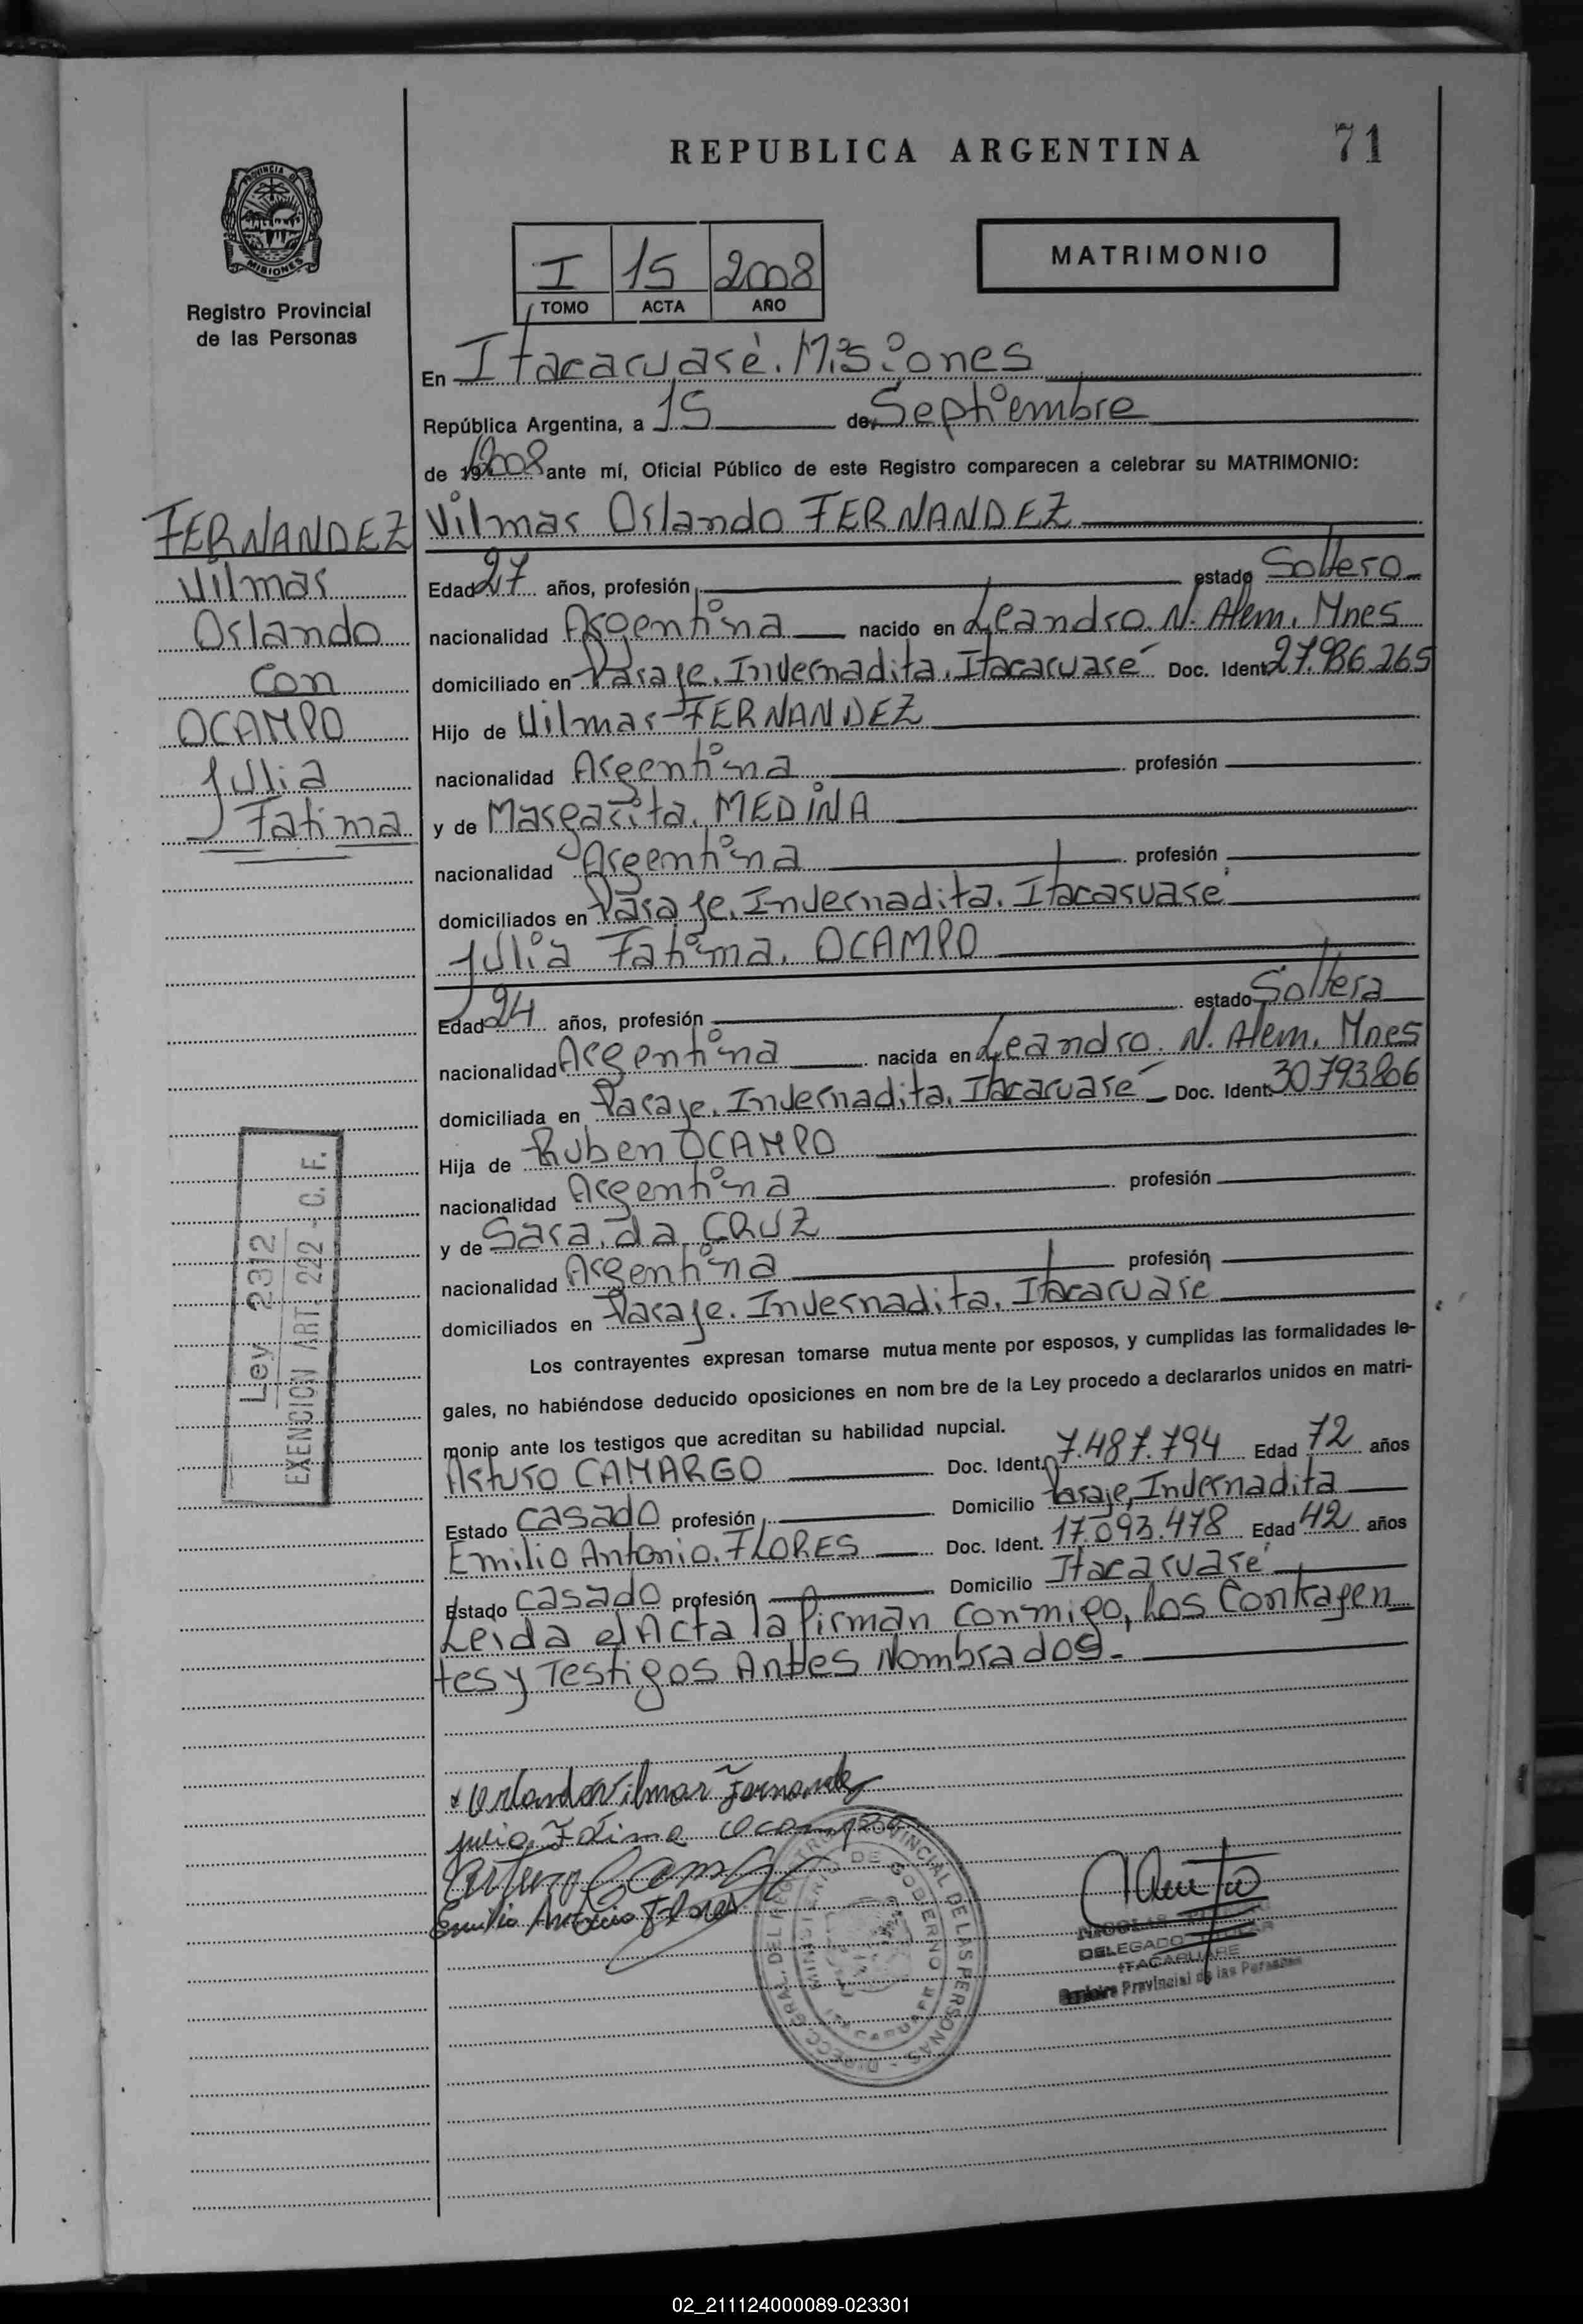 REPUBLICA ARGENTINA
71
PROVINCIA DE
MISIONES
Registro Provincial
de las Personas
I 15 2008
TOMO ACTA AÑO
MATRIMONIO
En Itacaruaré. Misiones
República Argentina, a 15 de Septiembre
de 192008 ante mí, Oficial Público de este Registro comparecen a celebrar su MATRIMONIO:
FERNANDEZ
Vilmar
Orlando
con
OCAMPO
Julia
Fatima
Vilmar Orlando FERNANDEZ
Edad 27 años, profesión estado Soltero
nacionalidad Argentina nacido en Leandro. N. Alem. Mnes
domiciliado en Paraje. Invernadita. Itacaruaré Doc. Ident. 27.986.265
Hijo de Vilmar FERNANDEZ
nacionalidad Argentina profesión
y de Margarita. MEDINA
nacionalidad Argentina profesión
domiciliados en Paraje. Invernadita. Itacaruaré
Julia Fatima. OCAMPO
Edad 24 años, profesión estado Soltera
nacionalidad Argentina nacida en Leandro. N. Alem. Mnes
domiciliada en Paraje. Invernadita. Itacaruaré Doc. Ident. 30.793.806
Hija de Ruben OCAMPO
nacionalidad Argentina profesión
y de Sara. da. CRUZ
nacionalidad Argentina profesión
domiciliados en Paraje. Invernadita. Itacaruare
Ley 2312
EXENCION ART. 222 - C. F.
Los contrayentes expresan tomarse mutua mente por esposos, y cumplidas las formalidades le-
gales, no habiéndose deducido oposiciones en nom bre de la Ley procedo a declararlos unidos en matri-
monio ante los testigos que acreditan su habilidad nupcial.
Arturo CAMARGO Doc. Ident. 7.487.794 Edad 72 años
Estado casado profesión Domicilio Paraje, Invernadita
Emilio Antonio. FLORES Doc. Ident. 17.093.478 Edad 42 años
Estado casado profesión Domicilio Itacaruaré
Leida el Acta la firman conmigo, los Contrayen
tes y Testigos Antes Nombrados.-
Orlando Vilmar Fernandez
Julia Fatima Ocampo
Arturo Cam
Emilio Antonio Flores
DIRECC. GRAL. DEL REGISTRO PROVINCIAL DE LAS PERSONAS
MINISTERIO DE GOBIERNO
ITACARUARE
DELEGADO TITULAR
ITACARUARE
Provincial de las Personas
02_211124000089-023301